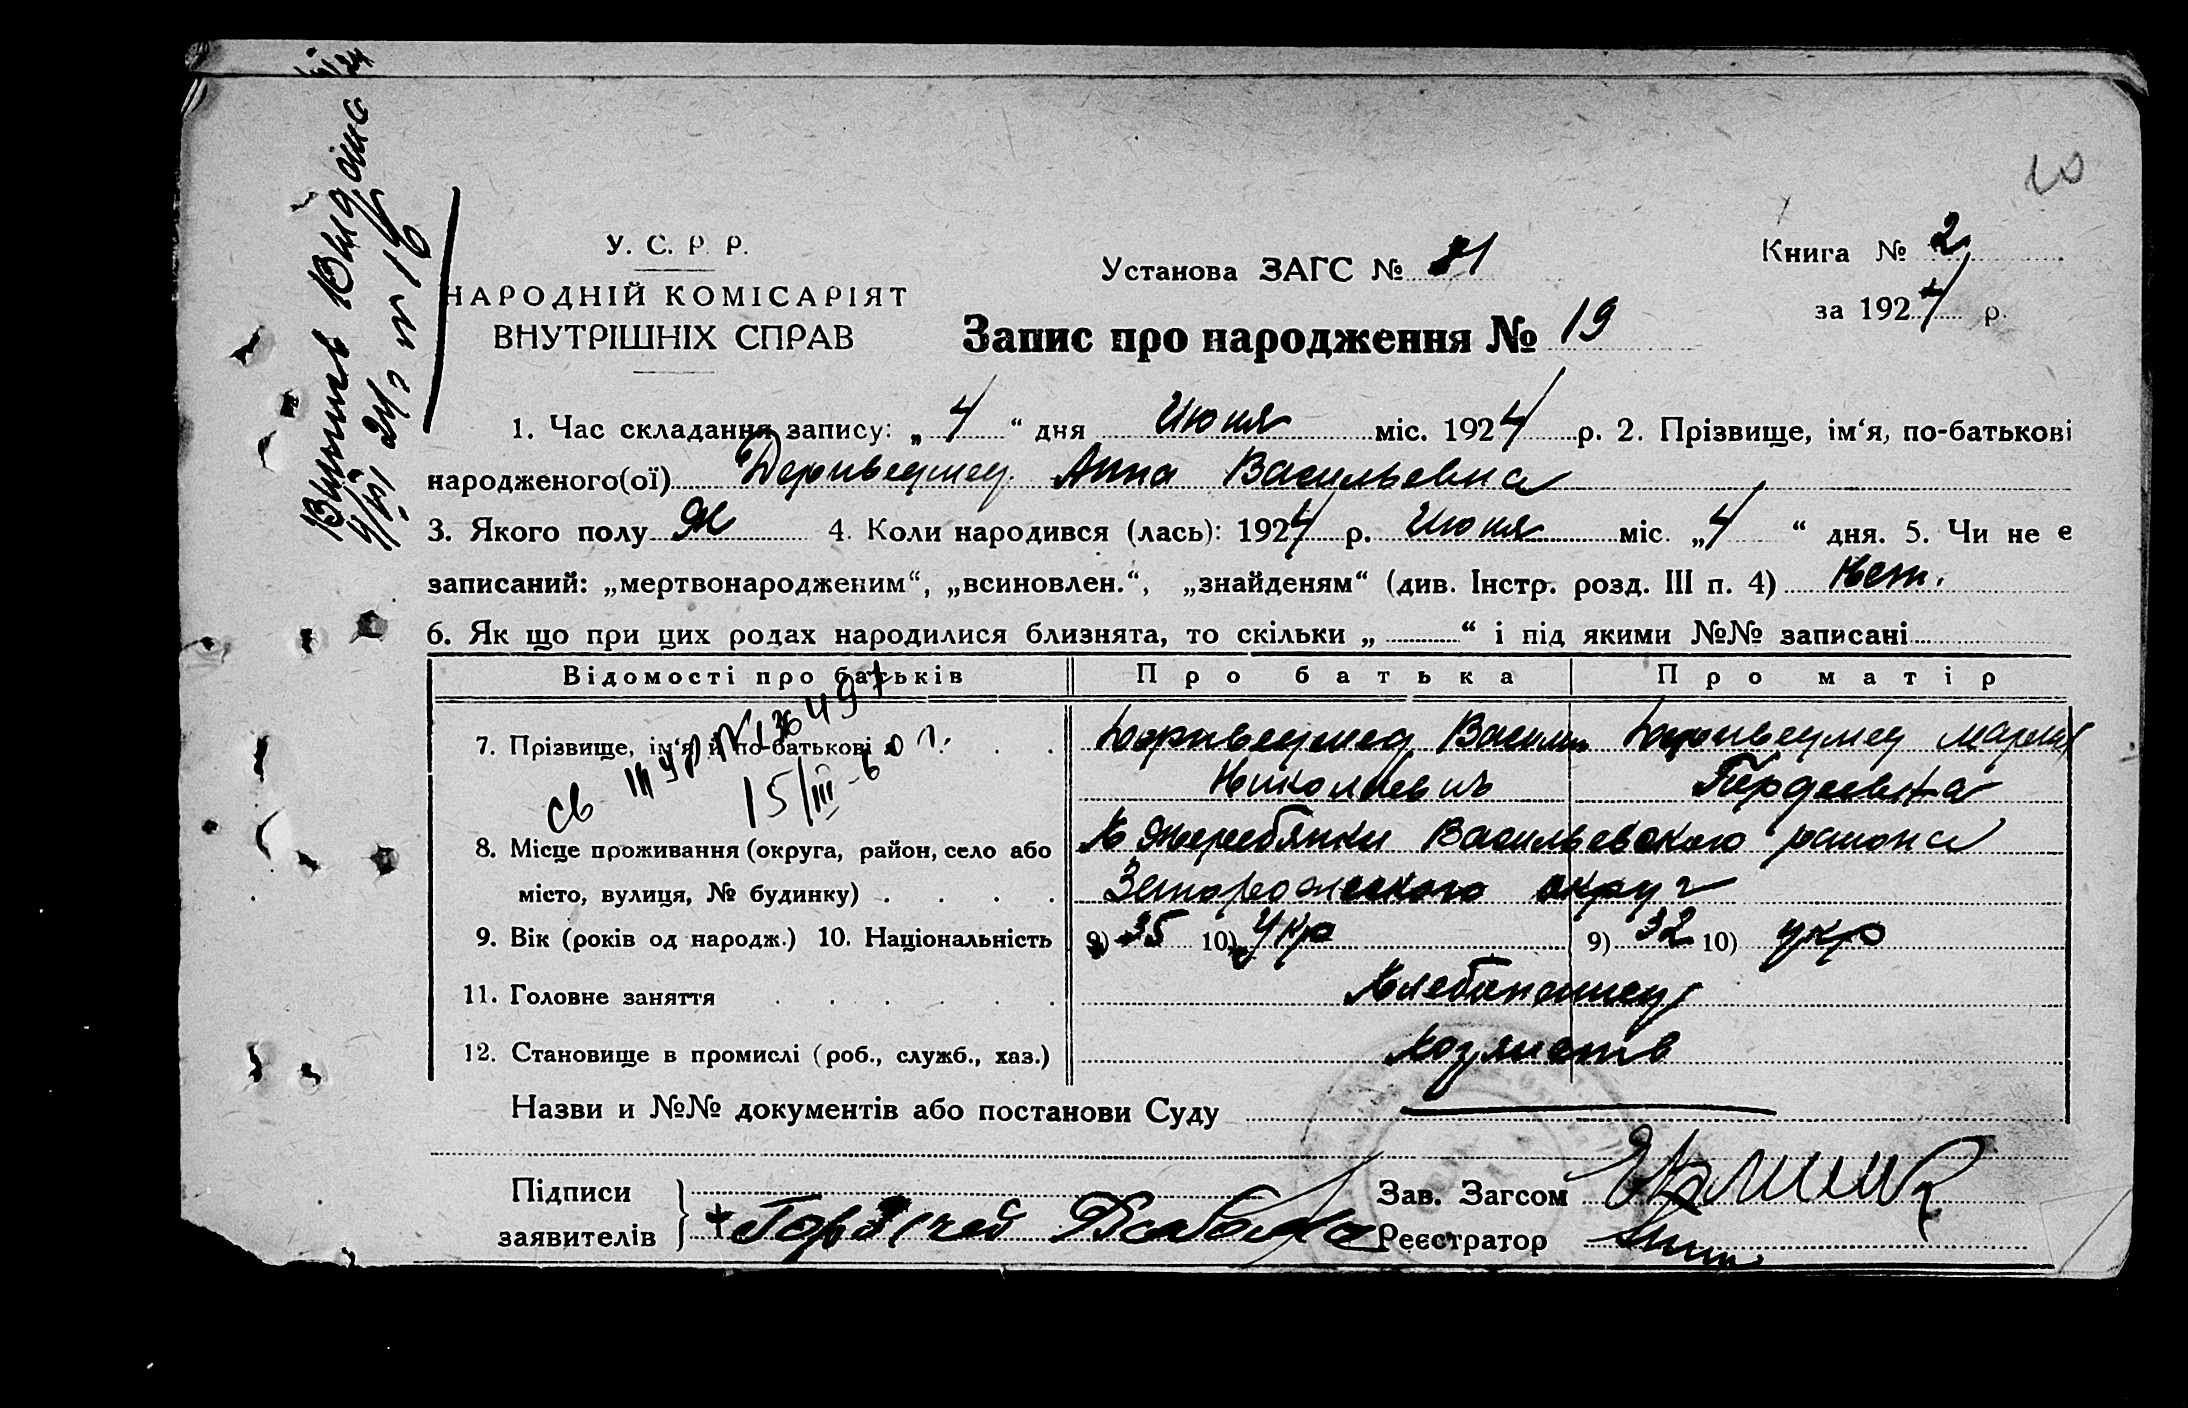 10
У. С. Р. Р.
НАРОДНІЙ КОМІСАРІЯТ
ВНУТРІШНІХ СПРАВ
Установа ЗАГС №
Книга № 2
за 1924 р.
Запис про народження № 19
1. Час складання запису: „4“ дня Июня міс. 1924 р. 2. Прізвище, ім‘я, по-батькові
народженого(ої) Дериведмед Анна Васильевна
3. Якого полу Ж 4. Коли народився (лась): 1924 р. Июня міс. „4“ дня. 5. Чи не є
записаний: „мертвонародженим“, „всиновлен.“, „знайденям“ (див. Інстр. розд. III п. 4) Нет.
6. Як що при цих родах народилися близнята, то скільки „ “ і під якими №№ записані
Відомості про батьків Про батька Про матір
7. Прізвище, ім‘я й по-батькові Дериведмед Васили Дериведмед Мария
Николаевич Гордеевна
15/III-60 г.
8. Місце проживання (округа, район, село або Жеребянки Васильевского района
місто, вулиця, № будинку) Запорожского округ
9. Вік (років од народж.) 10. Національність 9) 35 10) Укр 9) 32 10) укр
11. Головне заняття Хлебопашец
12. Становище в промислі (роб., служб., хаз.) Хозяйств
Назви и №№ документів або постанови Суду
Підписи
заявителів
Зав. Загсом
Реєстратор